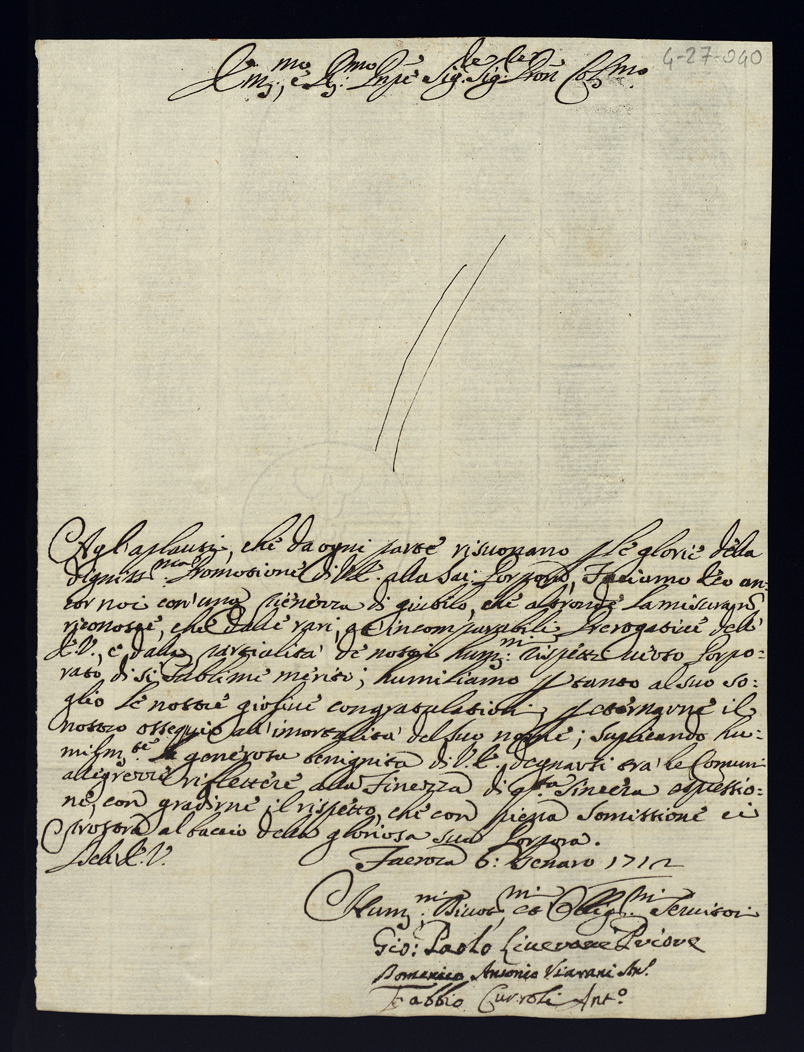 4-27-040
Em.mo, e R.mo Prnpe Sig.re Sig.r Pron Col.mo
Agl'aplausi, che da ogni parte risuonano p le glorie della
digniss.ma Promotione di V.E. alla Sac: Porpora, Faciamo Eco an:
cor noi con una pienezza di giubilo, che
riconosce, che dalle rari, et incomparabili Prerogative dell'
E.V., e dalla partialità de nostri hum.mi rispetti verso Porpo:
rato di si sublime merito; humiliamo p tanto al suo so:
glio le nostre giolive congratulationi, p eternarne il
nostro ossequio all'imortalità del suo nome; suplicando hu:
milm.te la generosa benignità di V.E. degnarsi tra le Comuni
allegrezze riflettere alla Finezza di q.ta sincera espressio:
ne, con gradirne il rispetto, che con piena somissione ci
prostra al bacio della gloriosa sua Porpora.
Dell'E.V.
Faenza 6: Genaro 1712
Hum.mi Divot.mi, et Oblig.mi Servitori
Gio: Paolo Liverane Priore
Domenico Antonio Viarani An.
Fabbio Carroli Ant.o